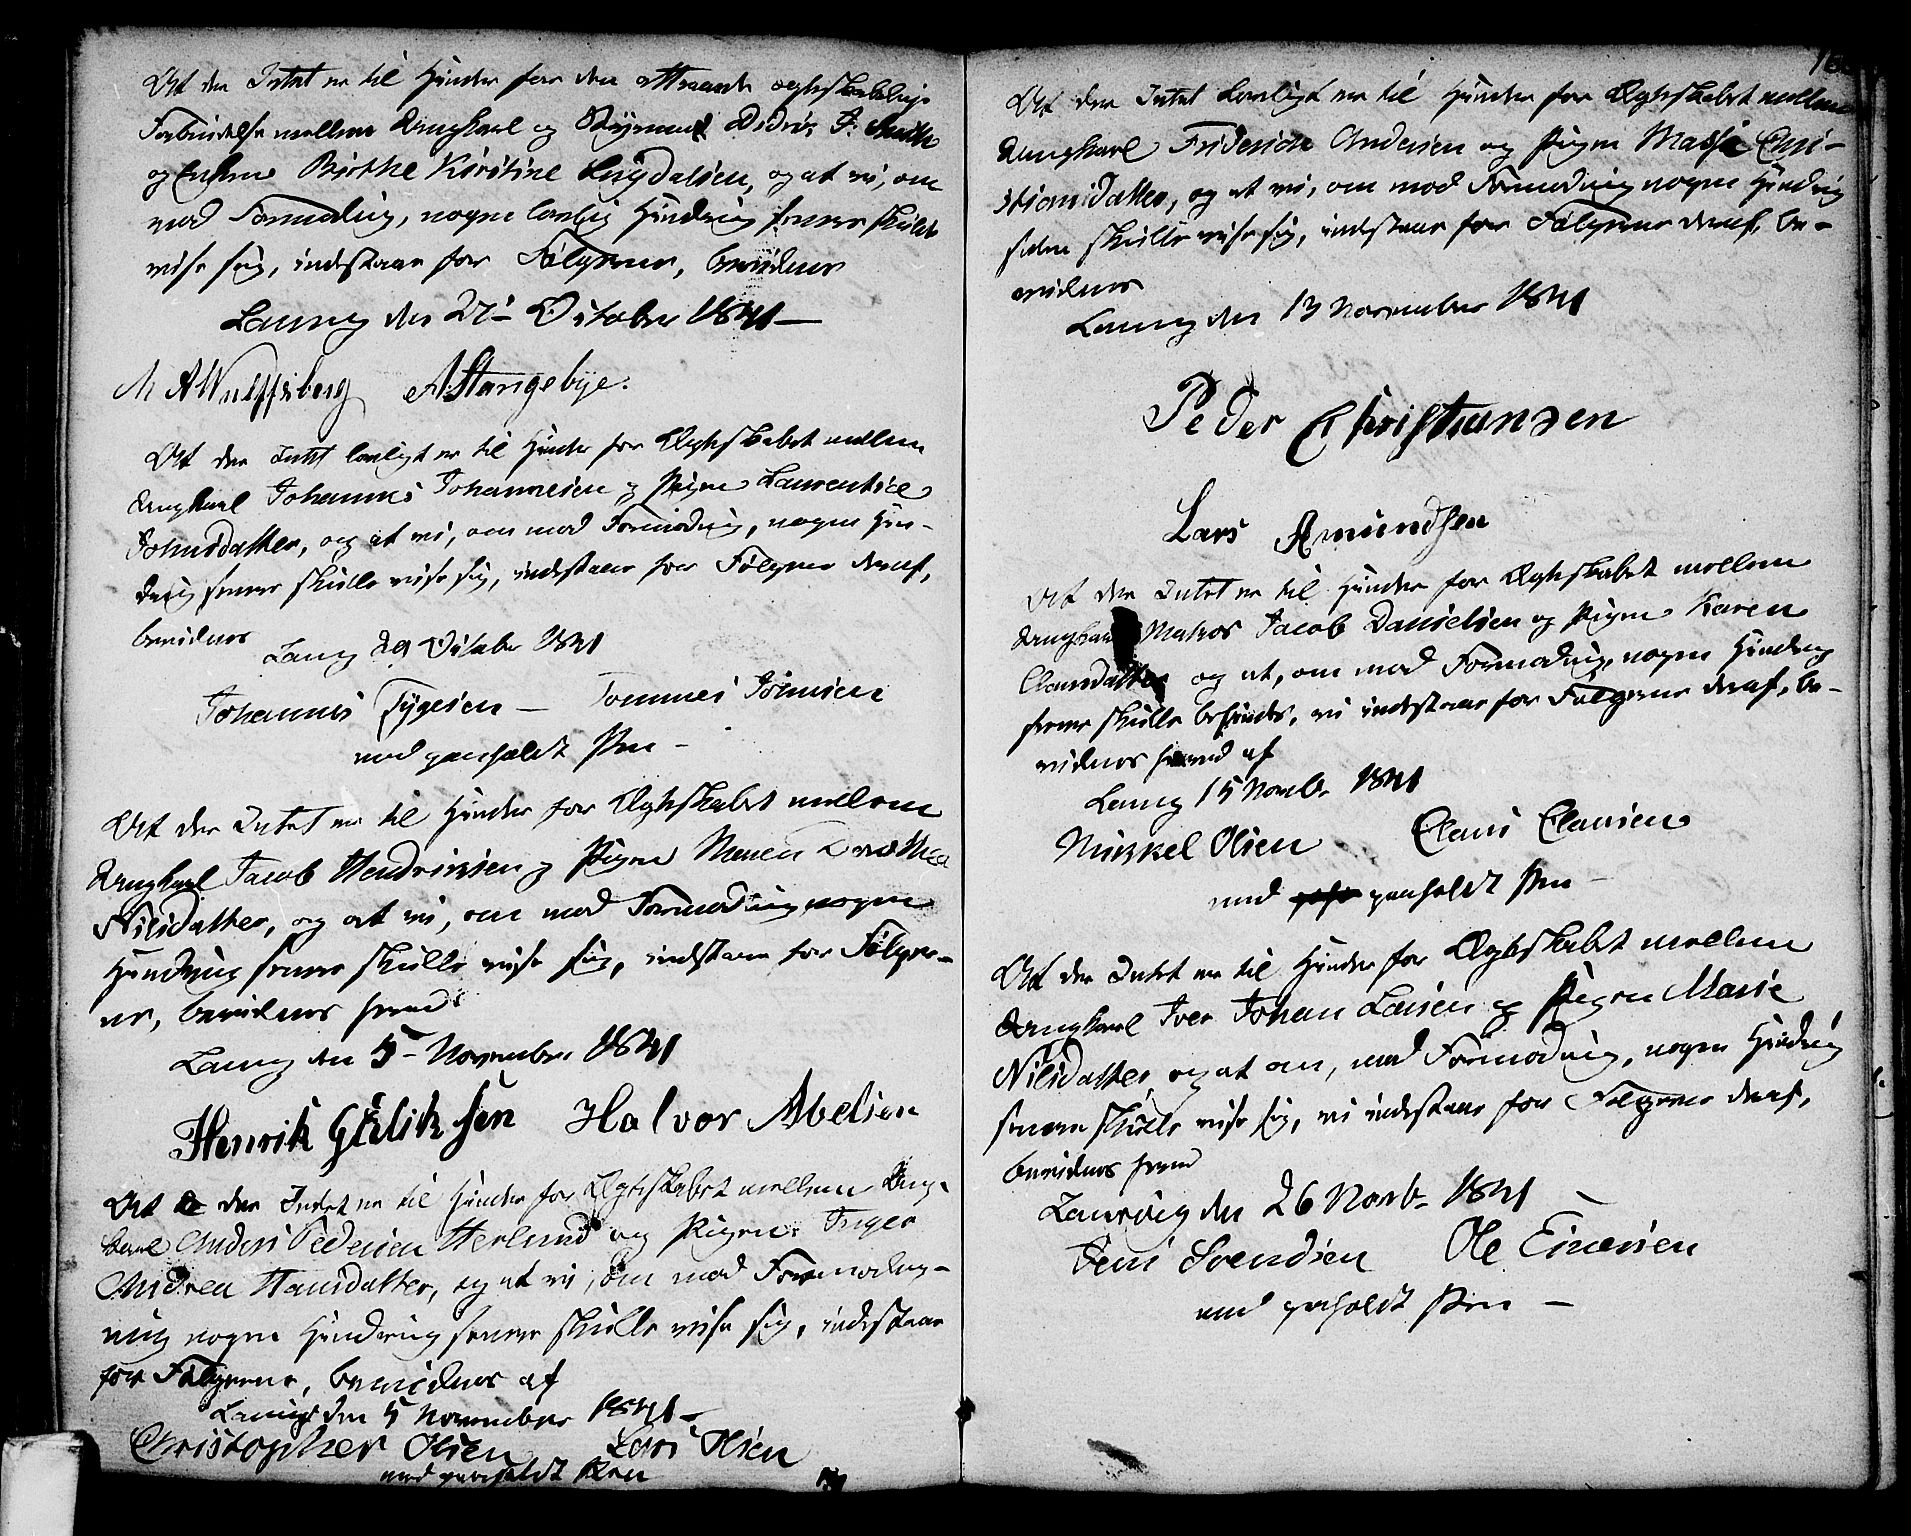 At der Intet er til Hinder for den attraaede ægteskabelige
Forbindelse mellem Ungkarl og Styrmand Didrik J. Smith
og Enken Birthe Kirstine Lugdalsen, og at vi, om
mod Formoding, nogen lovlig Hindring senere skulde
vise sig, indestaae for Følgerne, bevidnes
Laurv den 27- October 1841-
M A Wulfsberg A Stangebye.
At der Intet lovligt er til Hinder for Ægteskabet mellem
Ungkarl Johannes Johannesen og Pigen Laurentze
Johnsdatter, og at vi, om mod Formoding, nogen Hin-
dring senere skulle vise sig, indestaae for Følgerne deraf,
bevidnes
Laurv 29 October 1841
Johannes Tygesen - Tommes Johnsen
med paaholdt Pen -
At der Intet er til Hinder for Ægteskabet mellem
Ungkarl Jacob Hendriksen og Pigen Maren Dorothea
Nilsdatter, og at vi, om mod Formoding nogen
Hindring senere skulle vise sig, indestaae for Følger-
ne, bevidnes herved
Laurv den 5- November 1841
Henrik Gulliksen Halvor Abelsen
At der Intet er til Hinder for Ægteskabet mellem Ung-
karl Anders Pedersen Herlund og Pigen Inger
Andrea Hansdatter, og at vi, om mod Formod-
ning nogen Hindring senere skulle vise sig, indestaae
for Følgerne, bevidnes af
Laurvig den 5 November 1841-
Christopher Olsen Lars Olsen
med paaholdt Pen
At der Intet Lovligt er til Hinder for Ægteskabet mellem
Ungkarl Friderich Andersen og Pigen Mathea Chri-
stiansdatter, og at vi, om mod Formoding nogen Hindring
siden skulle vise sig, indestaae for Følgerne deraf, be-
vidnes
Laurv den 13 November 1841
Peder Christiansen
Lars Amundsen
At der Intet er til Hinder for Ægteskabet mellem
Ungkarl Matros Jacob Danielsen og Pigen Karen
Clausdatter og at, om mod Formoding, nogen Hindring
senere skulle befindes, vi indestaae for Følgerne deraf, be-
vidnes herved af
Laurv 15 Novbr 1841
Mikkel Olsen Claus Clausen
med paaholdt Pen -
At der Intet er til Hinder for Ægteskabet mellem
Ungkarl Iver Johan Larsen og Pigen Marie
Nilsdatter og at om, mod Formoding, nogen Hindring
senere skulle vise sig, vi indestaae for Følgerne deraf,
bevidnes herved
Laurvig den 26 Novb- 1841 -
Jens Svendsen Ole Einersen
med paaholdt Pen -